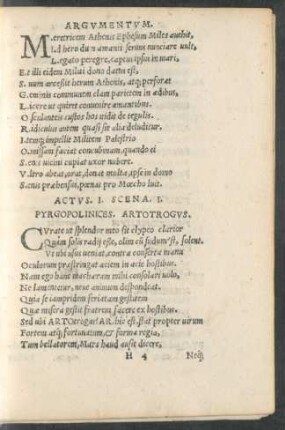 ARGVMENTVM.
Meretricem Athenis Ephesum Miles auehit,
I.d hero dum amanti seruus nunciare uult,
L.egato peregre, captus ipsus in mari,
E.t illi eidem Militi dono datus est,
S.uum arcessit herum Athenis, atque perforat
G.eminis communem clam parietem in aedibus,
L.icere ut quiret conuenire amantibus.
O.sculanteis custos hos uidit de tegulis.
R.idiculus autem quasi sit alia deluditur.
I.temque impellit Militem Palestrio
O.missam faciat concubinam, quando ei
S.enis uicini cupiat uxor nubere.
V.ltro abeat, orat, donat multa, ipse in domo
S.enis praehensus, poenas pro Moecho luit.
ACTVS. I. SCENA. I.
PYRGOPOLINICES. ARTOTROGVS.
CVrate ut splendor meo sit clypeo clarior
Quàm solis radij esse, olim cũ sudum'st, solent.
Vt ubi usus ueniat, contra conserta manu
Oculorum praestringat aciem in acie hostibus.
Nam ego hanc machaeram mihi consolari uolo,
Ne lamentetur, neue animum despondeat.
Quia se iampridem feriatam gestitem
Quae misera gestit fratrem facere ex hostibus.
Sed ubi ARTOtrogus? AR. hic est. stat propter uirum
Fortem atq; fortunatum, & forma regia,
Tum bellatorem, Mars haud ausit dicere,
H 4 Neq;